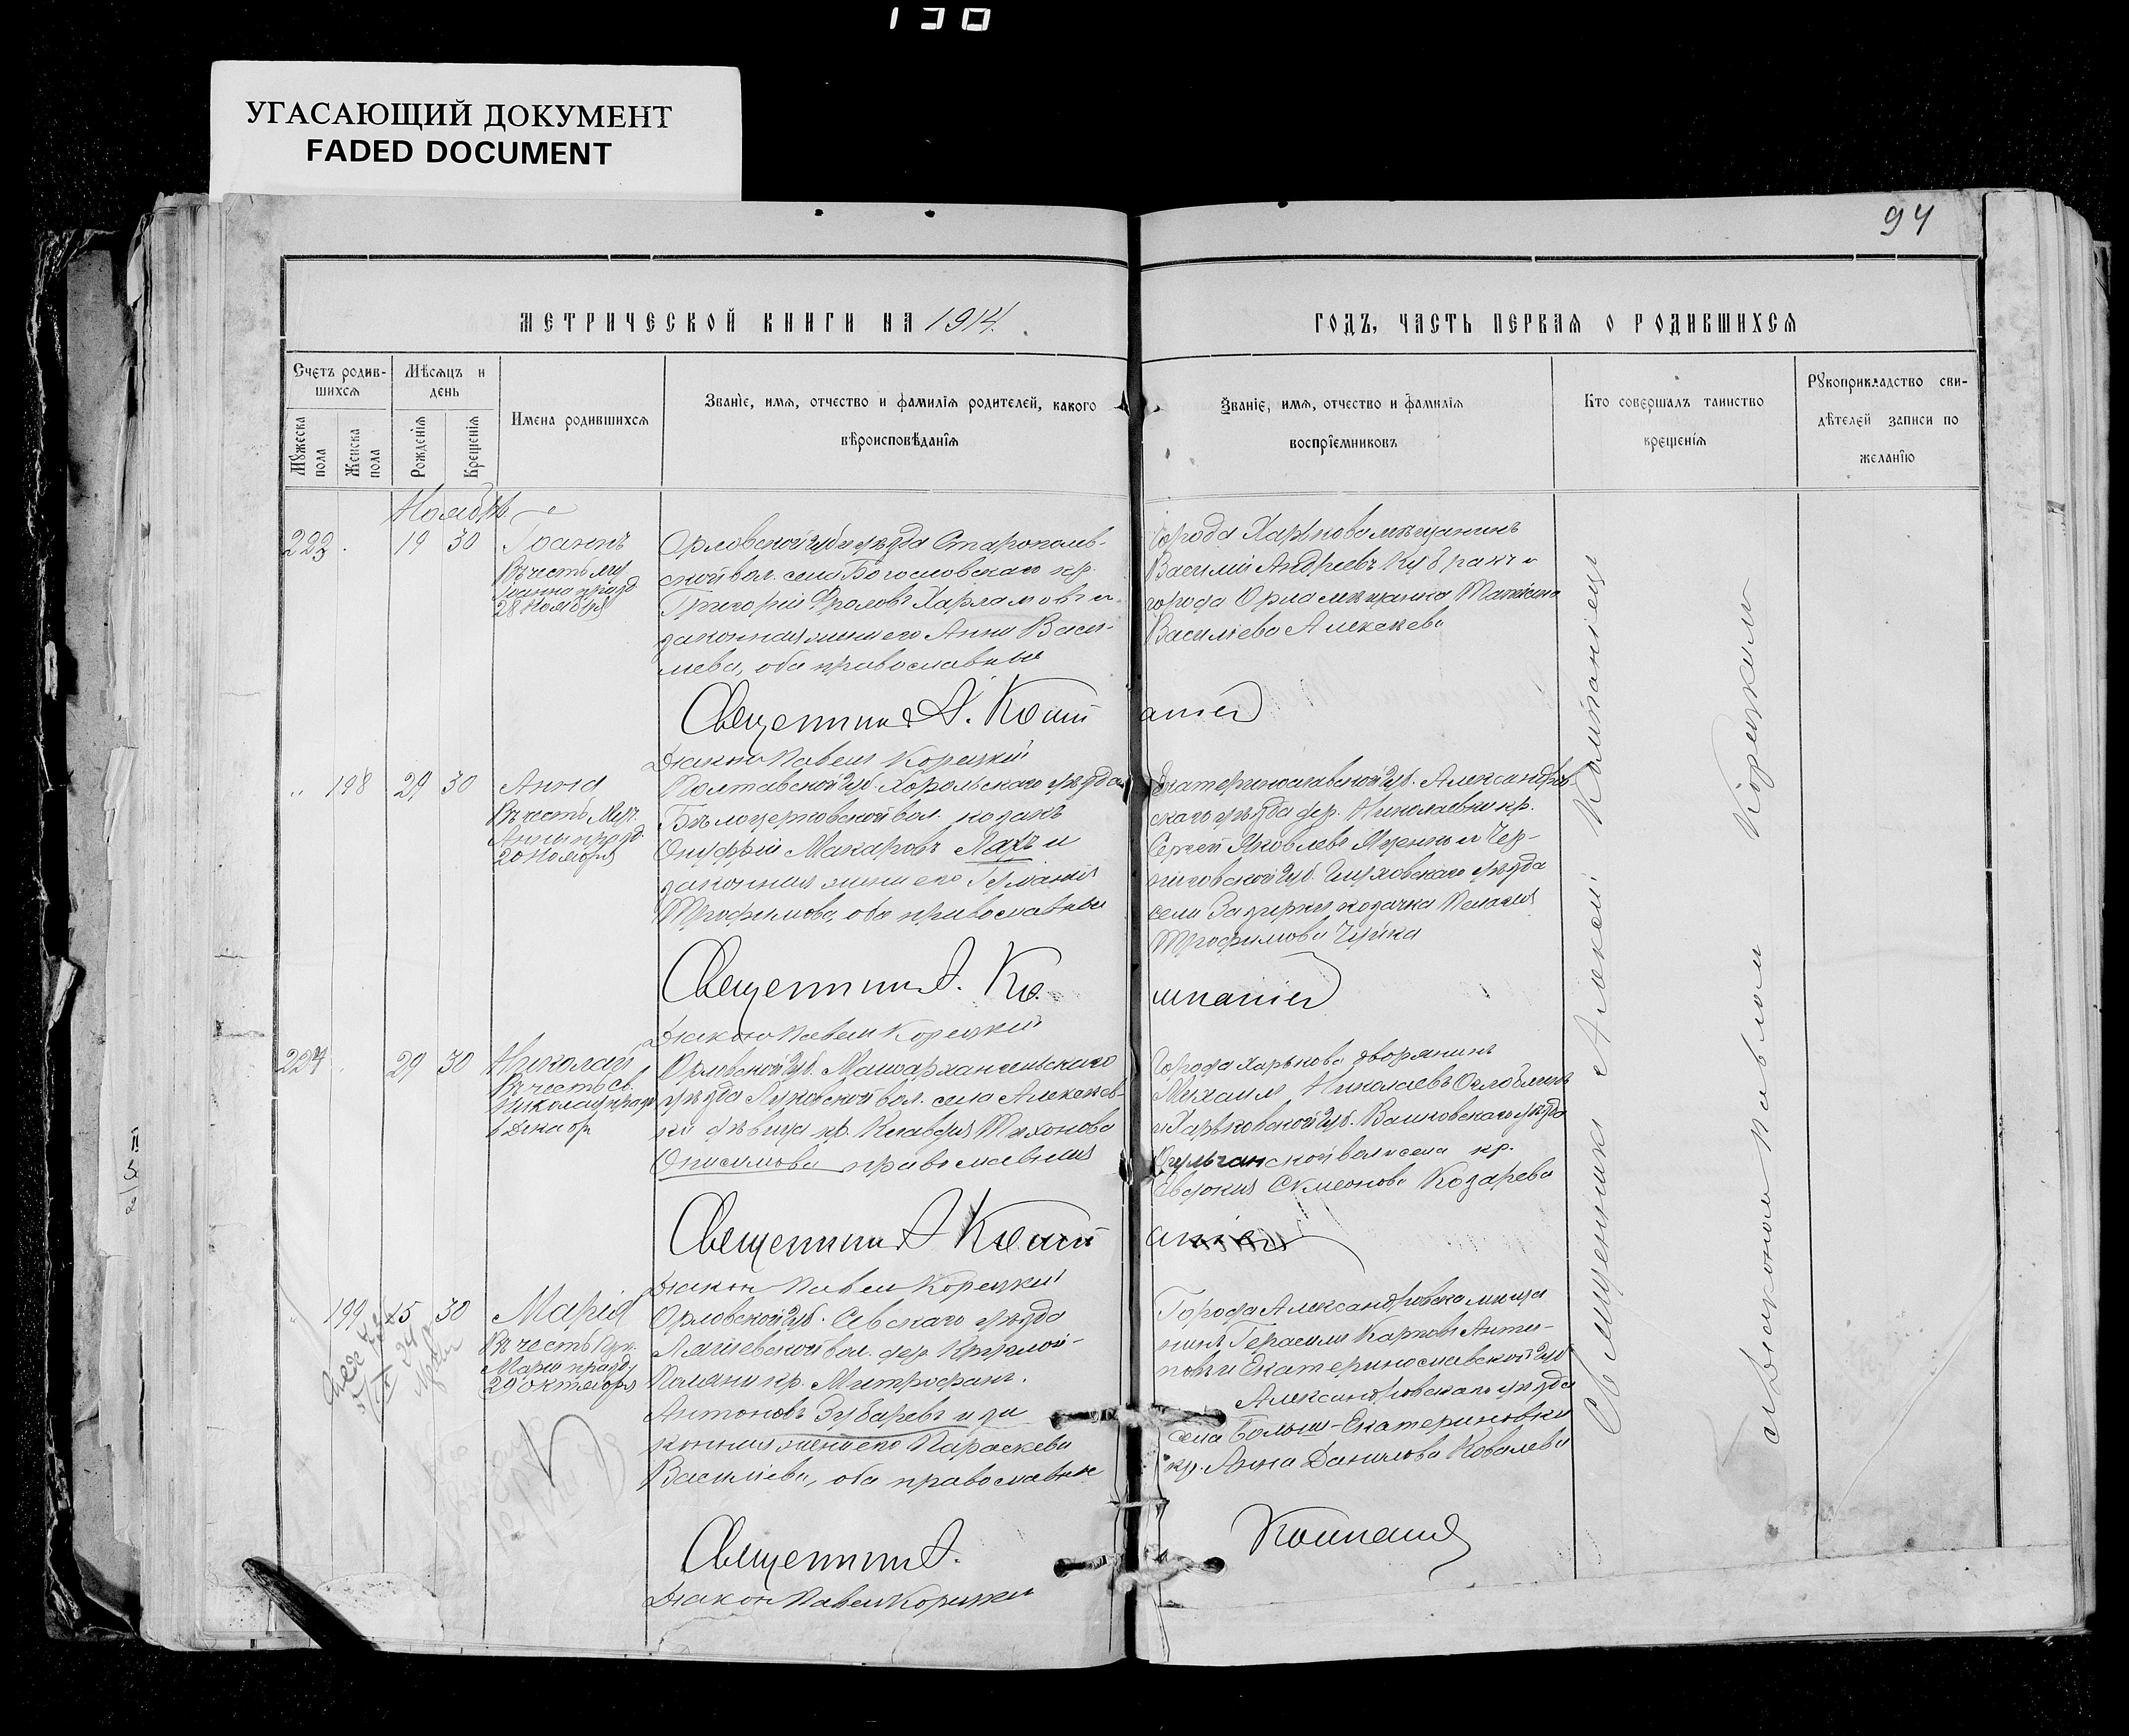 130
УГАСАЮЩИЙ ДОКУМЕНТ
FADED DOCUMENT
94
МЕТРИЧЕСКОЙ КНИГИ НА 1914
ГОДЪ, ЧАСТЬ ПЕРВАЯ О РОДИВШИХСЯ
Счетъ родив-
шихся
Мужеска пола
Женска пола
Мѣсяцъ и
день
Рожденія
Крещенія
Имена родившихся
Званіе, имя, отчество и фамилія родителей, какого
вѣроисповѣданія
Званіе, имя, отчество и фамилія
воспріемниковъ
Кто совершалъ таинство
крещенія
Рукоприкладство сви-
дѣтелей записи по
желанію
Ноябрь
223 19 30 Іоаннъ
Въ честь муч
Іоанна празд
28 Ноября
Орловской губ уѣзда
ской вол. села Богословскаго кр.
Григорій Фроловъ Харламовъ и
законная жена его Анна Васи-
лева, оба православные
Города Харькова мѣщанинъ
Василій Андреевъ и
города Орла мѣщанка
Васильева Алексеева
Священникъ А. Компаніец
Діаконъ Павелъ Корецкій
198 29 30 Анна
Въ честь Муч.
Анны празд.
20 Ноября
Полтавской губ. Хорольскаго уѣзда
Бѣлоцерковской вол. козакъ
Онуфрій Макаровъ Лахъ и
законная жена его
Трофимова, оба православные
Екатеринославской губ. Александров-
скаго уѣзда дер. Николаевки кр.
Сергей Яковлевъ и Чер-
ниговской губ. Глуховскаго уѣзда
села козачка Пелагия
Трофимова Чуйка
Священникъ А. Компаніец
Діаконъ Павелъ Корецкій
224 29 30 Николай
Въ честь Св.
Николая празд
6 Декабр
Орловской губ. Малоархангельскаго
уѣзда вол. села Алексеев-
ки дѣвица кр. Клавдія Тихонова
Онисимова православная
Города Харькова дворянинъ
Михаилъ Николаевъ
и Харьковской губ. Валковскаго уѣзда
Огульчанской вол и села кр.
Евдокия Симеонова Козарева
Священникъ А Компаніец
Діаконъ Павелъ Корецкій
199 15 30 Марія
Въ честь
Маріи празд
29 Октября
Орловской губ. Севскаго уѣзда
вол. дер. Круглой-
Поляны кр. Митрофанъ
Антоновъ Зубаревъ и за
конная жена его Параскева
Васильева, оба православные
Города Александровска мѣща
нинъ Герасимъ Карповъ Анти-
повъ и Екатеринославской губ
Александровскаго уѣзда
села Больш-Екатериновки
кр. Анна Данилова Ковалева
Священникъ А. Компаніец
Діаконъ Павелъ Корецкій
Священникъ Алексей Компаніецъ
съ Діакономъ Павломъ Корецкимъ